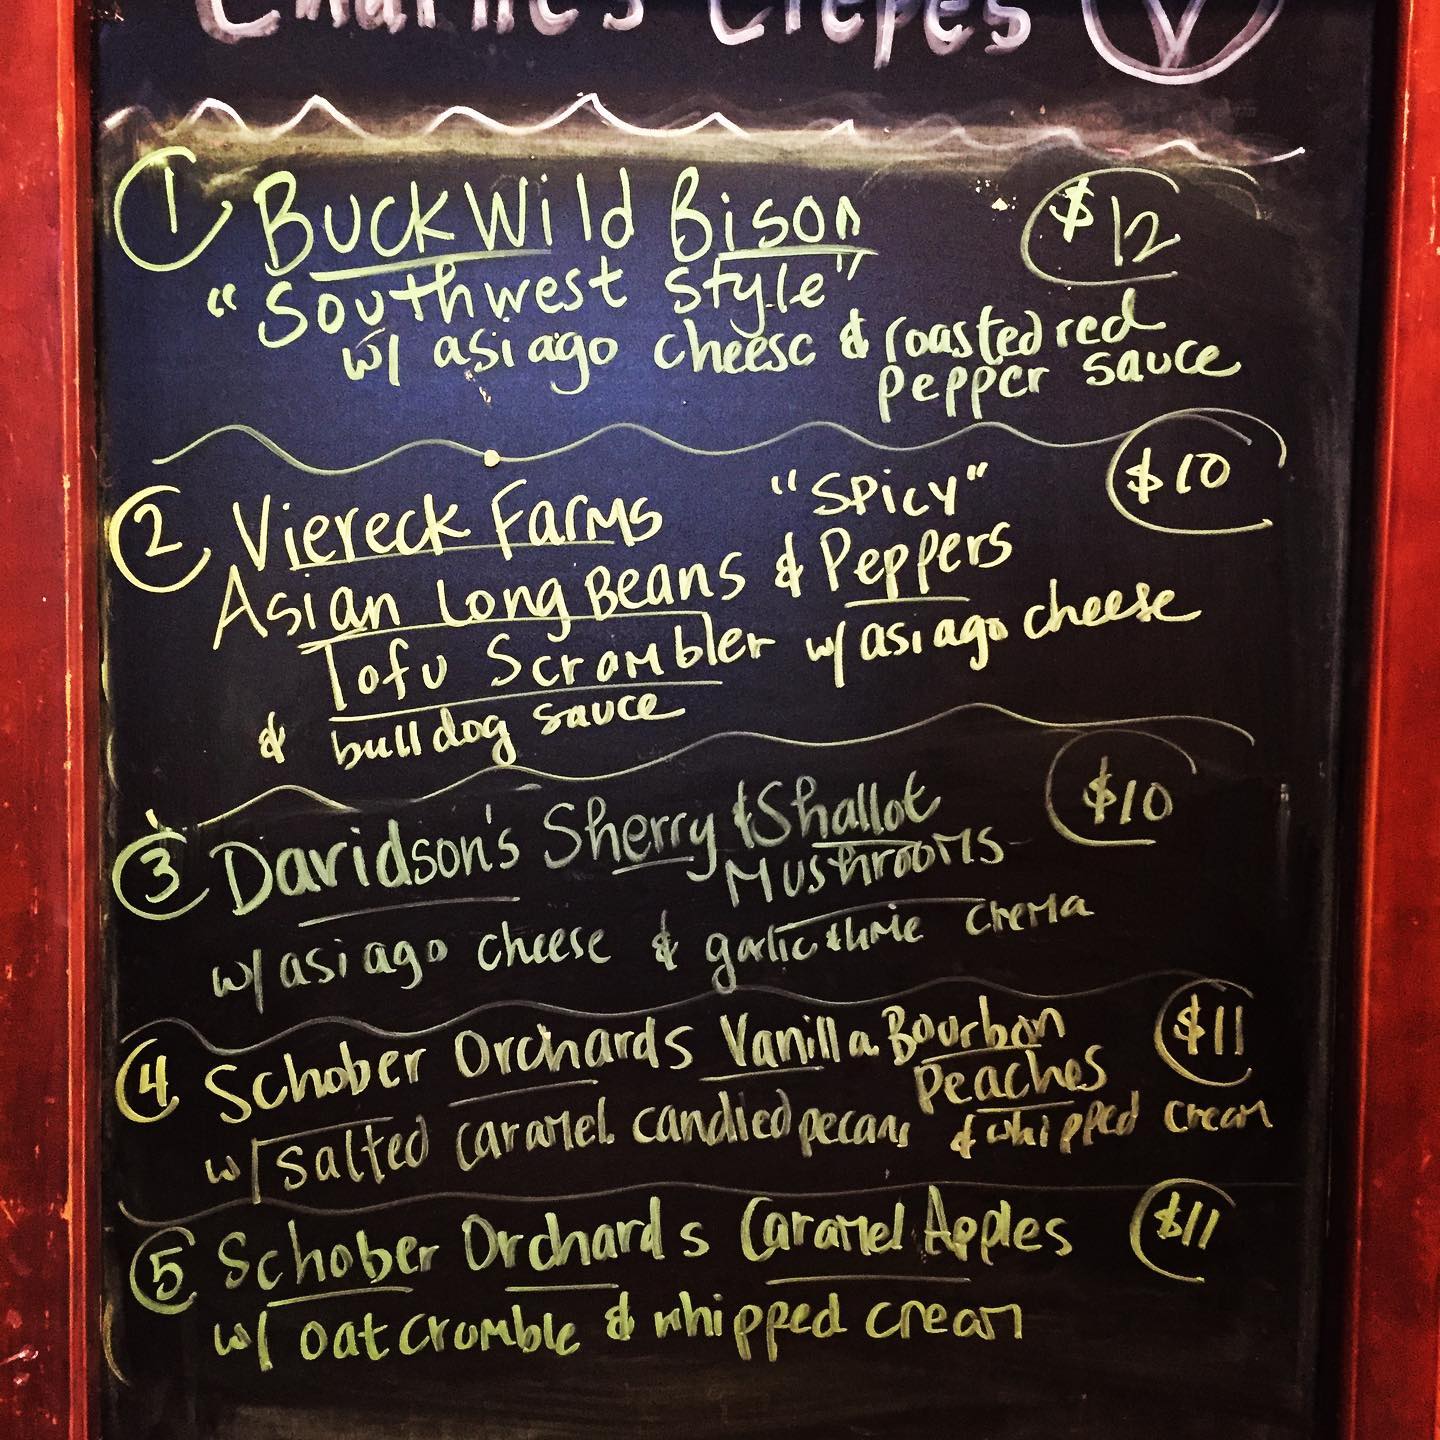 Charlie's Crepes
1 BuckWild Bison $12
"Southwest Style"
w/ asiago cheese & roasted red
pepper sauce
2 Viereck Farms "SPICY" $10
Asian Long Beans & Peppers
Tofu Scrambler w/ asiago cheese
& bulldog sauce
3 Davidson's Sherry & Shallot $10
Mushrooms
w/ asiago cheese & garlic thyme crema
4 Schober Orchards Vanilla Bourbon $11
Peaches
w/ salted caramel candied pecans & whipped cream
5 Schober Orchards Caramel Apples $11
w/ oat crumble & whipped cream